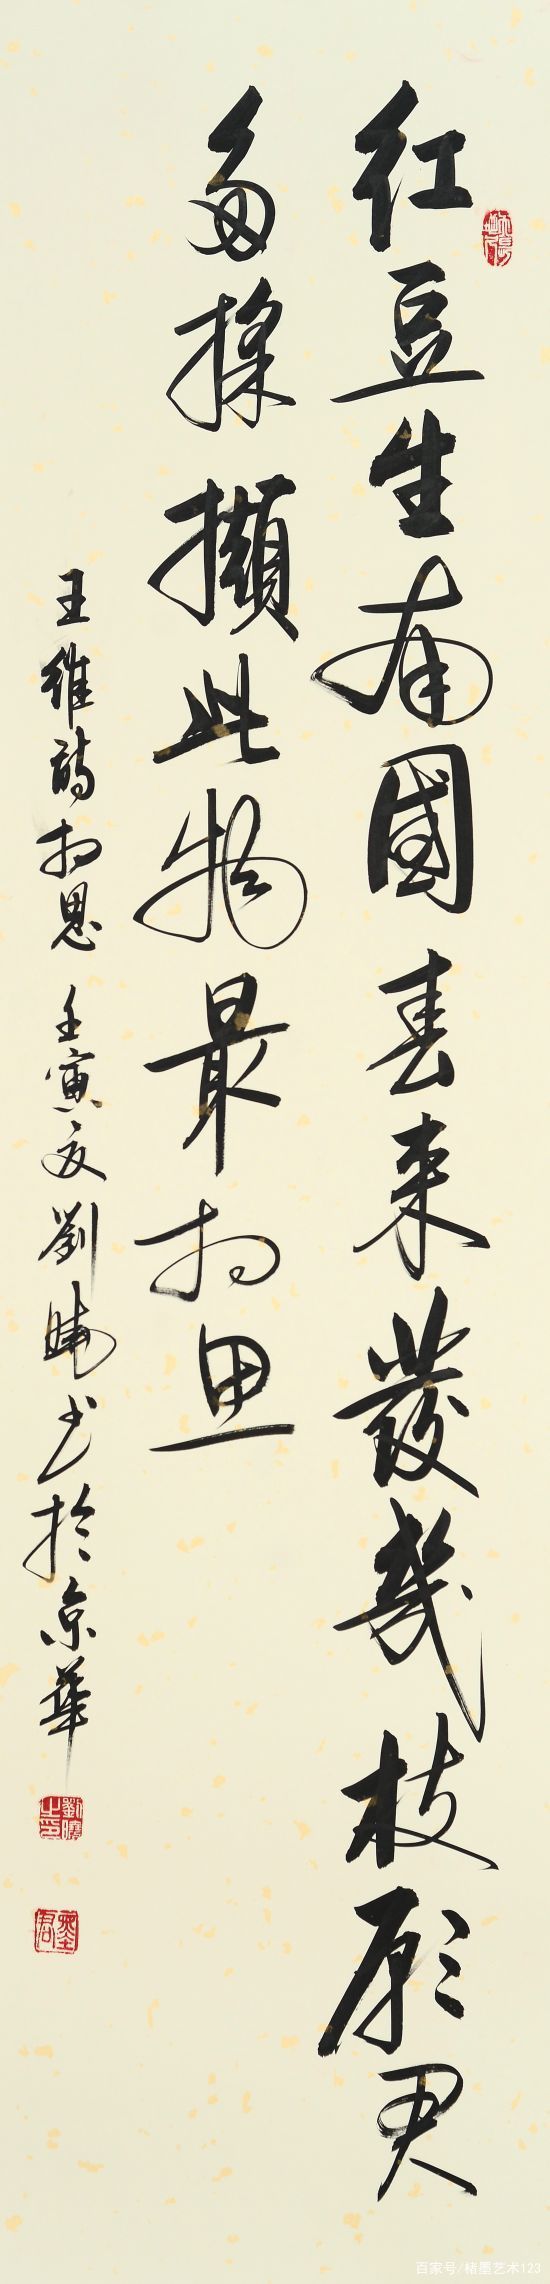 紅豆生南國春來發幾枝願君
多採擷此物最相思
王維詩相思 壬寅夏劉曉書於京華
劉曉之印
墨君
百家号/楮墨艺术123